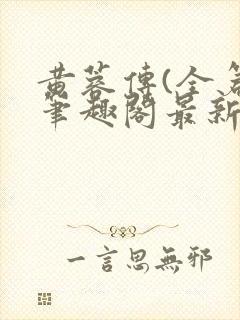 黄蓉傳(全
筆趣閣最新
一言思無邪